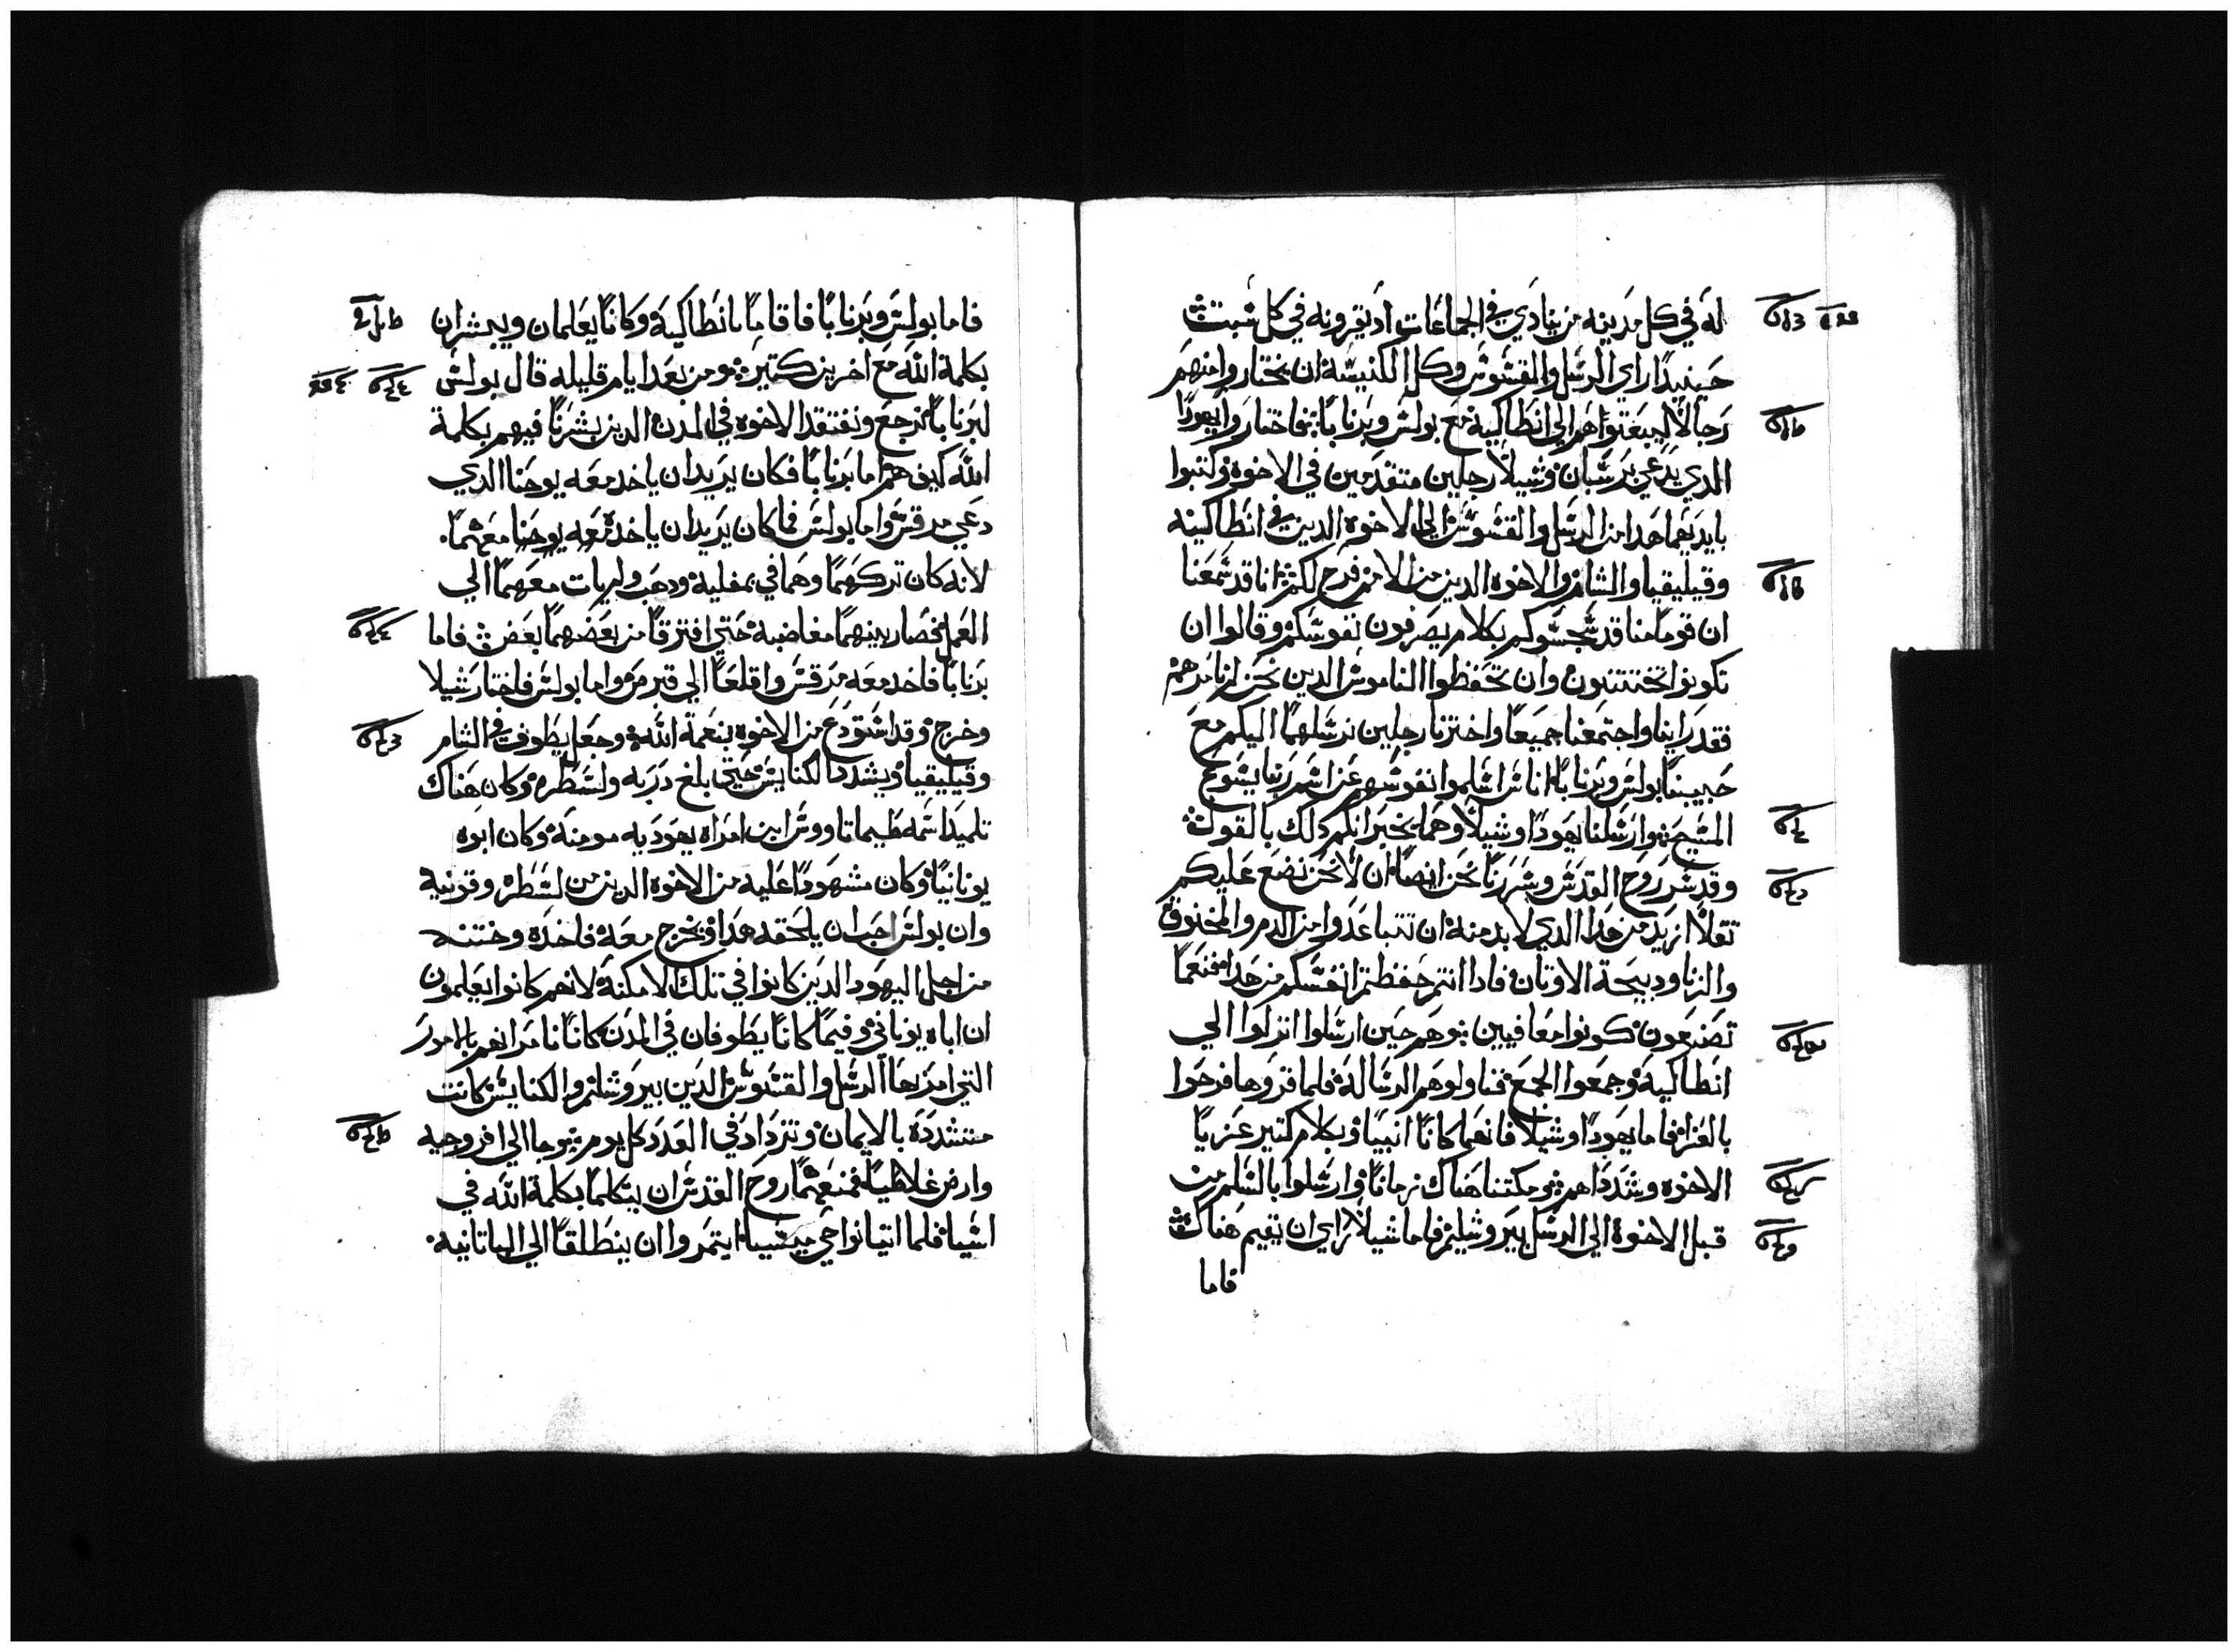 له في كل مدينه من ينادي في الجماعات اد يقرونه في كل سبت
حينيدا راي الرسل والقسوس وكل الكنيسه ان يختاروا منهم
رجالا ليبعتواهم الي انطاكيه مع بولس وبرنابا فاختاروا يهودا
الدي يدعي برسبان وشيلا رجلين متقدمين في الاخوه وكتبوا
بايديهما هدا من الرسل والقسوس الي الاخوه الدين في انطاكيه
وقيليقيا والشام والاخوه الدين من الامم فرح لكم انا قد سمعنا
ان قوما منا قد سجسوكم بكلام يصرفون نفوسكم وقالوا ان
تكونوا تختتنون وان تحفظوا الناموس الدين نحن لم نامرهم
فقد راينا واجتمعنا جميعا واخترنا رجلين نرسلهما اليكم مع
حبيبنا بولس وبرنابا اناس اسلموا نفوسهم عن اسم ربنا يسوع
المسيح وارسلنا يهودا وشيلا وهما يخبرانكم دلك بالقول
وقد سر روح القدس وسررنا نحن ايضا ان لا نحن نضع عليكم
تقلا ازيد من هدا الدي لا بد منه ان تتباعدوا من الدم والمخنوق
والزنا ودبيحة الاوتان فادا انتم حفظتم انفسكم من هدا فنعما
تصنعون كونوا معافيين وهم حين ارسلوا انزلوا الي
انطاكيه وجمعوا الجمع فناولوهم الرساله فلما قروها فرحوا
بالعزا فاما يهودا وشيلا فانهما كانا انبيا وبكلام كتير عزيا
الاخوه وشدداهم ومكتنا هناك زمانا وارسلوا بالسلم من
قبل الاخوة الي الرسل بيروشليم فاما شيلا راي ان يقيم هناك
فاما
فاما بولس وبرنابا فاقاما بانطاكيه وكانا يعلمان ويبشران
بكلمة الله مع اخرين كتيره ومن بعد ايام قليله قال بولس
لبرنابا نرجع ونفتقد الاخوه في المدن الدين بشرنا فيهم بكلمة
الله كيف هم اما برنابا فكان يريد ان ياخد معه يوحنا الدي
دعي مرقس واما بولس فما كان يريد ان ياخده معه يوحنا معهما
لانه كان تركهما وهما في بمفليه ودهب ولم يات معهما الي
العمل فصار بينهما مغاضبه حتي افترقا من بعضهما بعض فاما
برنابا فاخد معه مرقس واقلعا الي قبرص واما بولس فاختار شيلا
وخرج وقد استودع من الاخوه بنعمة الله وجعل يطوف في الشام
وقيليقيا ويشدد الكنايس حتي بلغ دربه ولسطره وكان هناك
تلميدا اسمه طيماتاووس ابن امراه يهوديه مومنه وكان ابوه
يونانيا وكان مشهودا عليه من الاخوه الدين من لسطره وقونية
وان بولس احب ان يلحقه هدا ويخرج معه فاخده وختنه
من اجل اليهود الدين كانوا في تلك الامكنه لانهم كانوا يعلمون
ان اباه يوناني وفيما كانا يطوفان في المدن كانا نامرانهم بالامور
التي امر بها الرسل والقسوس الدين بيروشليم والكنايس كانت
متشدده بالايمان وتزداد في العدد كل يوم وجا الي افروجيه
وارض غلاطيا فمنعهما روح القدس ان يتكلما بكلمة الله في
اسيا فلما اتيا نواحي ميسيا ايتمروا ان ينطلقا الي البتانيه